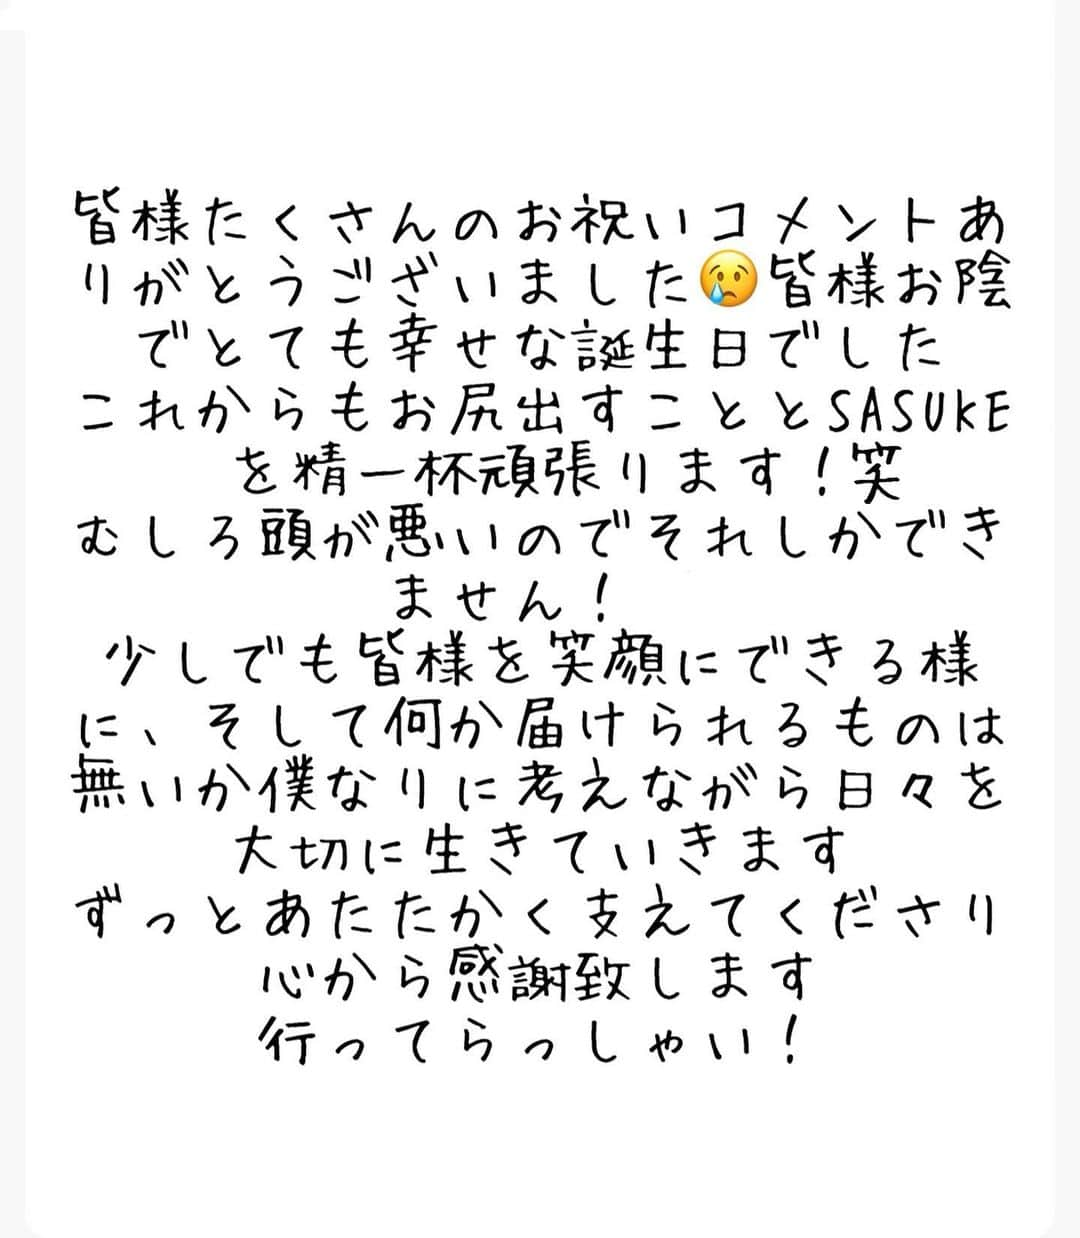 皆様たくさんのお祝いコメントあ
りがとうございました😢皆様お陰
でとても幸せな誕生日でした
これからもお尻出すこととSASUKE
を精一杯頑張ります！笑
むしろ頭が悪いのでそれしかでき
ません！
少しでも皆様を笑顔にできる様
に、そして何か届けられるものは
無いか僕なりに考えながら日々を
大切に生きていきます
ずっとあたたかく支えてくださり
心から感謝致します
行ってらっしゃい！